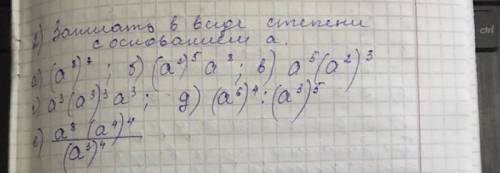 2) Записать в виде степени
с основанием a.
а) (a⁸)⁷; б) (a²)⁵ a⁸; в) a⁵(a²)³
г) a³(a³)³a³; д) (a⁶)⁴:(a³)⁵
е) a⁸(a⁴)⁴/(a³)⁴